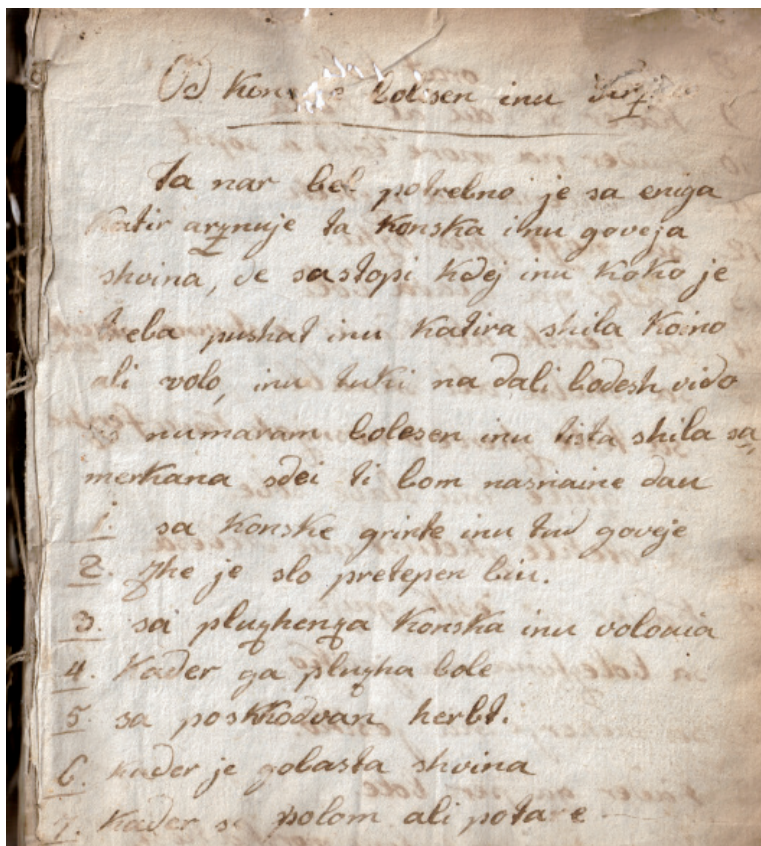 Od bolesen inu
Ta nar bel potrebno je sa eniga
Katir arznuje ta Konska inu goveja
shvina, de sastopi kdej inu koko je
treba pushat inu Katira shila Koino
ali volo, inu tuki na dali bodesh vido
numaram bolesen inu tista shila sa,
merkana sdei ti bom nasnaine dau
1. sa Konske grinte inu tud goveje
2. Zhe je slo pretepen biu.
3. sa pluzhenza Konska inu volouia
4. Kader ga pluzha bole
5. sa poskkodvan herbt.
6. Kader je gobasta shvina
7. Kader se polom ali potare